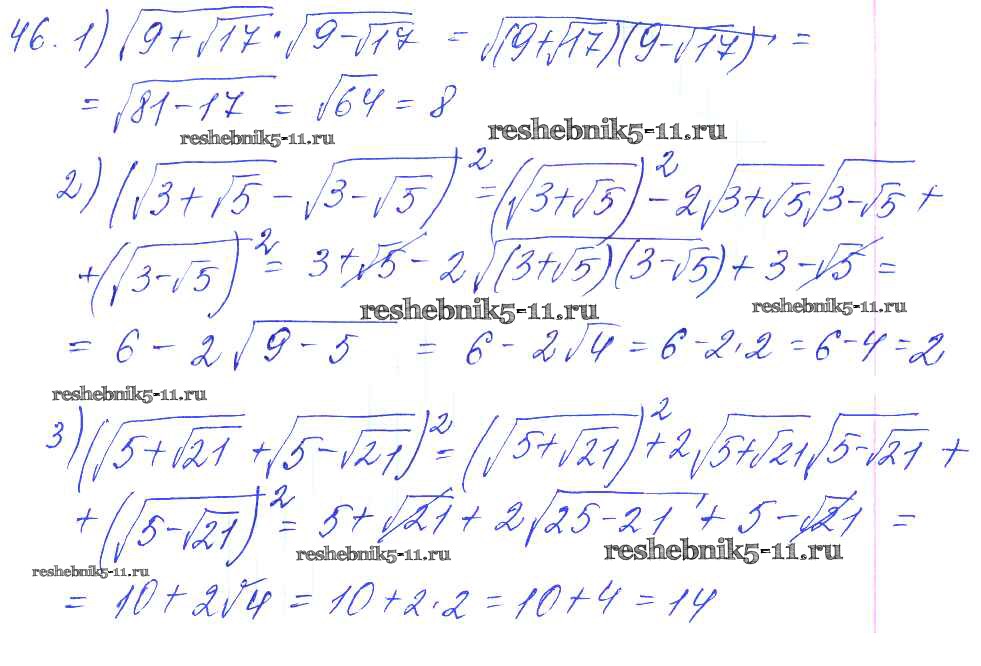 46. 1) √(9+√17) · √(9-√17) = √((9+√17)(9-√17)) =
= √(81-17) = √64 = 8
reshebnik5-11.ru reshebnik5-11.ru
2) (√(3+√5) - √(3-√5))² = (√(3+√5))² - 2√(3+√5)√(3-√5) +
+(√(3-√5))² = 3+√5 - 2√((3+√5)(3-√5)) + 3-√5 =
reshebnik5-11.ru reshebnik5-11.ru
= 6 - 2√(9-5) = 6 - 2√4 = 6-2·2 = 6-4 = 2
reshebnik5-11.ru
3) (√(5+√21) + √(5-√21))² = (√(5+√21))² + 2√(5+√21)√(5-√21) +
+ (√(5-√21))² = 5+√21 + 2√(25-21) + 5-√21 =
reshebnik5-11.ru reshebnik5-11.ru
reshebnik5-11.ru
= 10+2√4 = 10+2·2 = 10+4 = 14